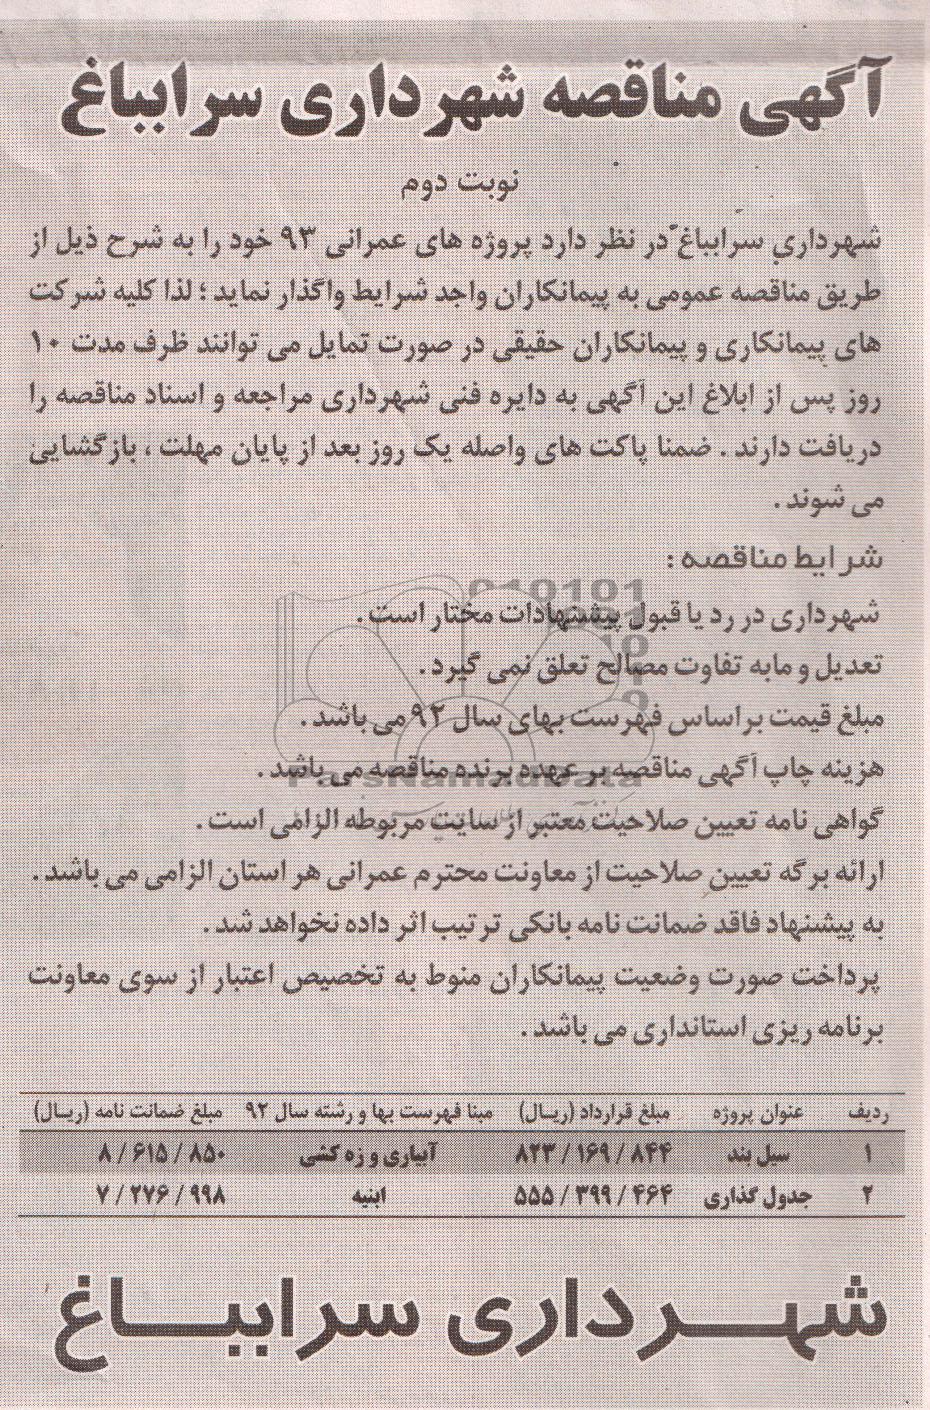 آگهی مناقصه شهرداری سرابباغ
نوبت دوم
شهرداری سرابباغ در نظر دارد پروژه های عمرانی ۹۳ خود را به شرح ذیل از
طریق مناقصه عمومی به پیمانکاران واجد شرایط واگذار نماید ؛ لذا کلیه شرکت
های پیمانکاری و پیمانکاران حقیقی در صورت تمایل می توانند ظرف مدت ۱۰
روز پس از ابلاغ این آگهی به دایره فنی شهرداری مراجعه و اسناد مناقصه را
دریافت دارند . ضمنا پاکت های واصله یک روز بعد از پایان مهلت ، بازگشایی
می شوند .
شرایط مناقصه :
شهرداری در رد یا قبول پیشنهادات مختار است .
تعدیل و مابه تفاوت مصالح تعلق نمی گیرد .
مبلغ قیمت براساس فهرست بهای سال ۹۲ می باشد .
هزینه چاپ آگهی مناقصه بر عهده برنده مناقصه می باشد .
گواهی نامه تعیین صلاحیت معتبر از سایت مربوطه الزامی است .
ارائه برگه تعیین صلاحیت از معاونت محترم عمرانی هر استان الزامی می باشد .
به پیشنهاد فاقد ضمانت نامه بانکی ترتیب اثر داده نخواهد شد .
پرداخت صورت وضعیت پیمانکاران منوط به تخصیص اعتبار از سوی معاونت
برنامه ریزی استانداری می باشد .
ردیف عنوان پروژه مبلغ قرارداد (ریـال) مبنا فهرست بها و رشته سال ۹۲ مبلغ ضمانت نامه (ریـال)
۱ سیل بند ۸۲۳ / ۱۶۹ / ۸۴۴ آبیاری و زه کشی ۸ / ۶۱۵ / ۸۵۰
۲ جدول گذاری ۵۵۵ / ۳۹۹ / ۴۶۴ ابنیه ۷ / ۲۷۶ / ۹۹۸
شهـــرداری سراببـــاغ
ParsNamadData